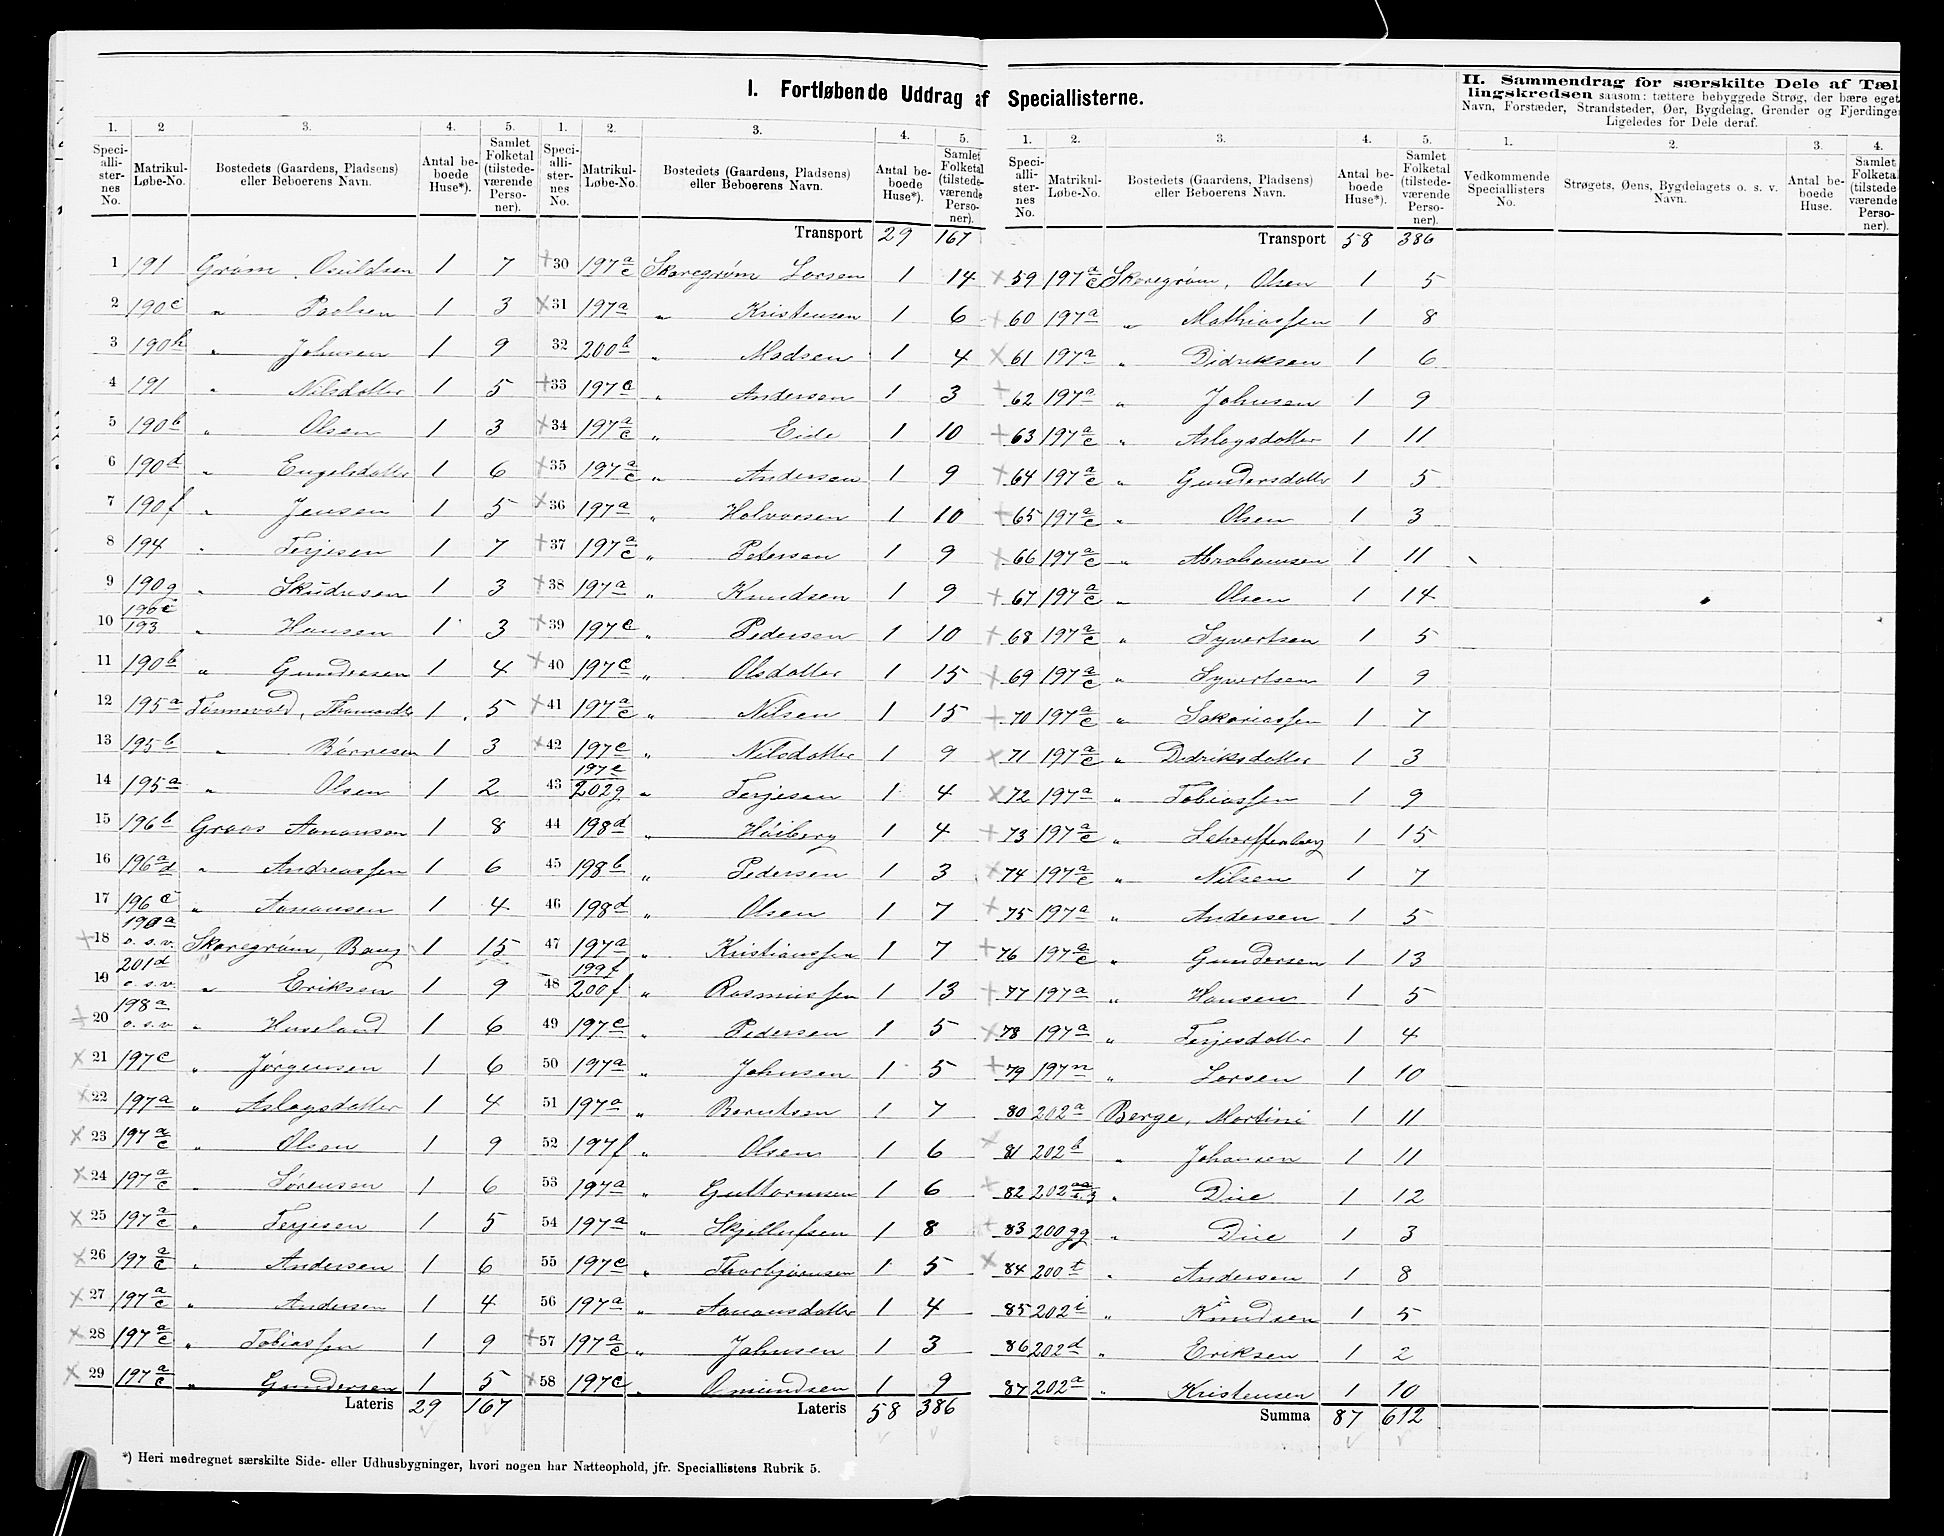 I. Fortløbende Uddrag af Speciallisterne.
1. Speciallisternes No. | 2 Matrikul-Løbe-No. | 3. Bostedets (Gaardens, Pladsens) eller Beboerens Navn. | 4. Antal beboede Huse*). | 5. Samlet Folketal (tilstedeværende Personer).
1 | 191 | Grøm, Osuldsen | 1 | 7
2 | 190c | „ Paulsen | 1 | 3
3 | 190h | „ Johnsen | 1 | 9
4 | 191 | „ Nilsdatter | 1 | 5
5 | 190b | „ Olsen | 1 | 3
6 | 190d | „ Engelsdatter | 1 | 6
7 | 190f | „ Jensen | 1 | 5
8 | 194 | „ Terjesen | 1 | 7
9 | 190g | „ | 1 | 3
10 | 193 | „ Hansen | 1 | 3
11 | 190b | „ Gundersen | 1 | 4
12 | 195a | Tønnevold, | 1 | 5
13 | 195b | „ Børresen | 1 | 3
14 | 195a | „ Olsen | 1 | 2
15 | 196b | Graas Aanonsen | 1 | 8
16 | 196a/d | „ Andreassen | 1 | 6
17 | 196c | „ Aanonsen | 1 | 4
18 | 190a o.s.v. | Skaregrøm, Bang | 1 | 15
19 | 201d o.s.v. | „ Eriksen | 1 | 9
20 | 198a o.s.v. | „ Haveland | 1 | 6
21 | 197c | „ Jørgensen | 1 | 6
22 | 197a | „ Aslagsdatter | 1 | 4
23 | 197a/c | „ Olsen | 1 | 9
24 | 197a/c | „ Sørensen | 1 | 6
25 | 197a/c | „ Terjesen | 1 | 5
26 | 197a/c | „ Andersen | 1 | 6
27 | 197a/c | „ Andersen | 1 | 4
28 | 197a/c | „ Tobiassen | 1 | 9
29 | 197a/c | „ Gundersen | 1 | 5
Lateris 29 | 167
1. Speciallisternes No. | 2. Matrikul-Løbe-No. | 3. Bostedets (Gaardens, Pladsens) eller Beboerens Navn. | 4. Antal beboede Huse*). | 5. Samlet Folketal (tilstedeværende Personer).
Transport 29 | 167
30 | 197a/c | Skaregrøm Larsen | 1 | 14
31 | 197a | „ Kristensen | 1 | 6
32 | 200b | „ Madsen | 1 | 4
33 | 197c | „ Andersen | 1 | 3
34 | 197a/c | „ Eide | 1 | 10
35 | 197a/c | „ Andersen | 1 | 9
36 | 197a | „ Halvorsen | 1 | 10
37 | 197a/c | „ Petersen | 1 | 9
38 | 197a | „ Knudsen | 1 | 9
39 | 197c | „ Pedersen | 1 | 10
40 | 197c | „ Olsdatter | 1 | 15
41 | 197a/c | „ Nilsen | 1 | 15
42 | 197c | „ Nilsdatter | 1 | 9
43 | 197e 202g | „ Terjesen | 1 | 4
44 | 198d | „ Høiberg | 1 | 4
45 | 198b | „ Pedersen | 1 | 3
46 | 198d | „ Olsen | 1 | 7
47 | 197a | „ Kristiansen | 1 | 7
48 | 199f 200f | „ Rasmussen | 1 | 13
49 | 197c | „ Pedersen | 1 | 5
50 | 197a | „ Johnsen | 1 | 5
51 | 197a | „ Berntsen | 1 | 7
52 | 197f | „ Olsen | 1 | 6
53 | 197a | „ Guttormsen | 1 | 6
54 | 197a | „ Skjellufsen | 1 | 8
55 | 197c | „ Thorbjørnsen | 1 | 5
56 | 197a | „ Aanonsdatter | 1 | 4
57 | 197a/c | „ Johnsen | 1 | 3
58 | 197c | „ Omundsen | 1 | 9
Lateris 58 | 386
1. Speciallisternes No. | 2. Matrikul-Løbe-No. | 3. Bostedets (Gaardens, Pladsens) eller Beboerens Navn. | 4. Antal beboede Huse*). | 5. Samlet Folketal (tilstedeværende Personer).
Transport 58 | 386
59 | 197a/c | Skaregrøm, Olsen | 1 | 5
60 | 197a | „ Mathiassen | 1 | 8
61 | 197a | „ Didriksen | 1 | 6
62 | 197a | „ Johnsen | 1 | 9
63 | 197a/c | „ Aslagsdatter | 1 | 11
64 | 197a/c | „ Gundersdatter | 1 | 5
65 | 197a/c | „ Olsen | 1 | 3
66 | 197a/c | „ Abrahamsen | 1 | 11
67 | 197a/c | „ Olsen | 1 | 14
68 | 197a/c | „ Syvertsen | 1 | 5
69 | 197a/c | „ Syvertsen | 1 | 9
70 | 197a/c | „ Sakariassen | 1 | 7
71 | 197a/c | „ Didriksdatter | 1 | 3
72 | 197a | „ Tobiassen | 1 | 9
73 | 197a/c | „ Scharffenberg | 1 | 15
74 | 197a/c | „ Nilsen | 1 | 7
75 | 197a | „ Andersen | 1 | 5
76 | 197a/c | „ Gundersen | 1 | 13
77 | 197a | „ Hansen | 1 | 5
78 | 197a | „ Terjesdatter | 1 | 4
79 | 197n | „ Larsen | 1 | 10
80 | 202a | Berge, Martini | 1 | 11
81 | 202b | „ Johansen | 1 | 11
82 | 202 | „ Due | 1 | 12
83 | 200gg | „ Due | 1 | 3
84 | 200t | „ Andersen | 1 | 8
85 | 202i | „ Knudsen | 1 | 5
86 | 202d | „ Eriksen | 1 | 2
87 | 202a | „ Kristensen | 1 | 10
Summa 87 | 612
II. Sammendrag for særskilte Dele af Tællingskredsen saasom: tættere bebyggede Strøg, der bære eget Navn, Forstæder, Strandsteder, Øer, Bygdelag, Grender og Fjerdinger Ligeledes for Dele deraf.
1. Vedkommende Speciallisters No. | 2. Strøgets, Øens, Bygdelagets o. s. v. Navn. | 3. Antal beboede Huse. | 4. Samlet Folketal (tilstedeværende Personer).
*) Heri medregnet særskilte Side- eller Udhusbygninger, hvori nogen har Natteophold, jfr. Speciallistens Rubrik 5.